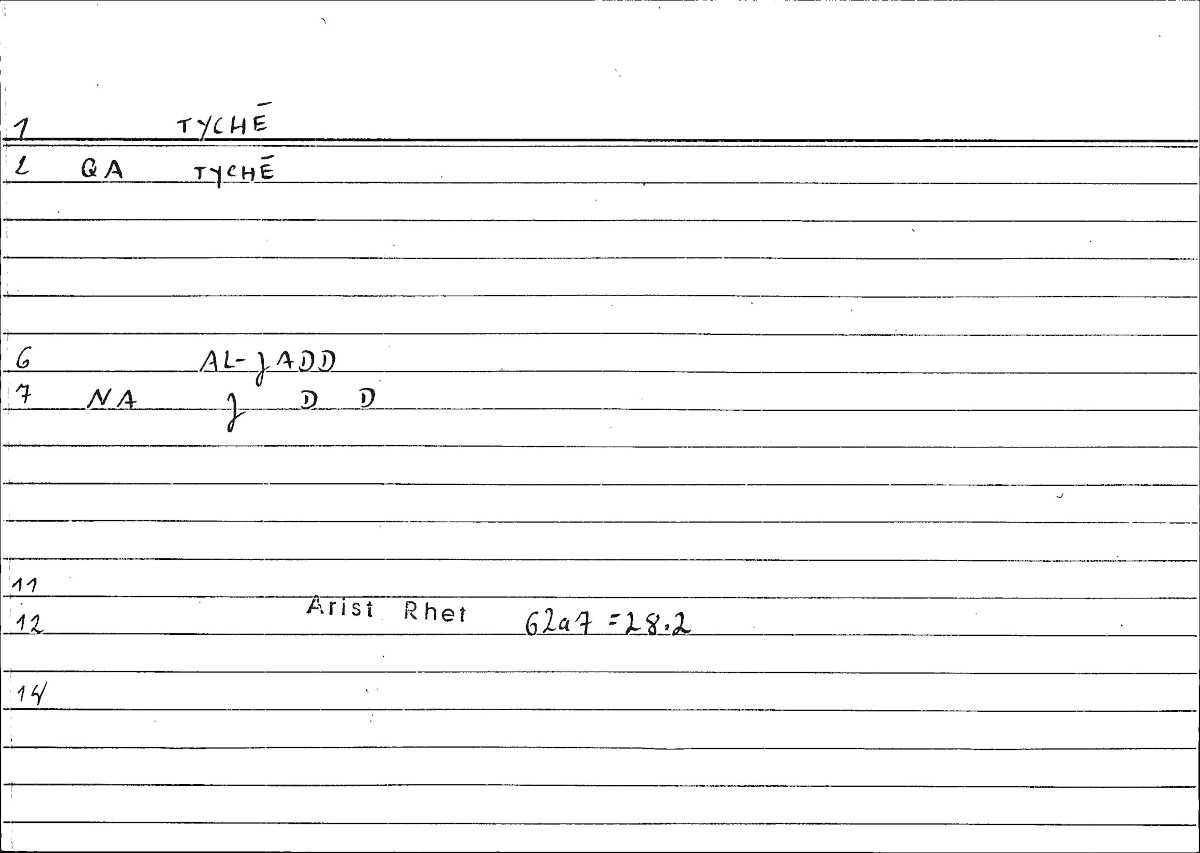 1 TYCHĒ
2 QA TYCHĒ
6 AL-JADD
7 NA J D D
11
12 Arist Rhet 62a7 = 28.2
14